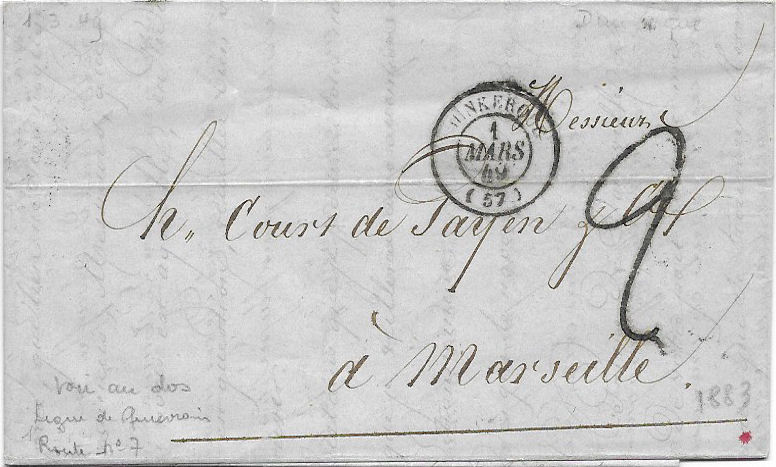 1 3 49
DUNKERQUE
1
MARS
49
(57)
Messieurs
h,, Court de Payen &
2
à Marseille.
voir au dos
Ligne de Quievrain
Route n° 7
1883